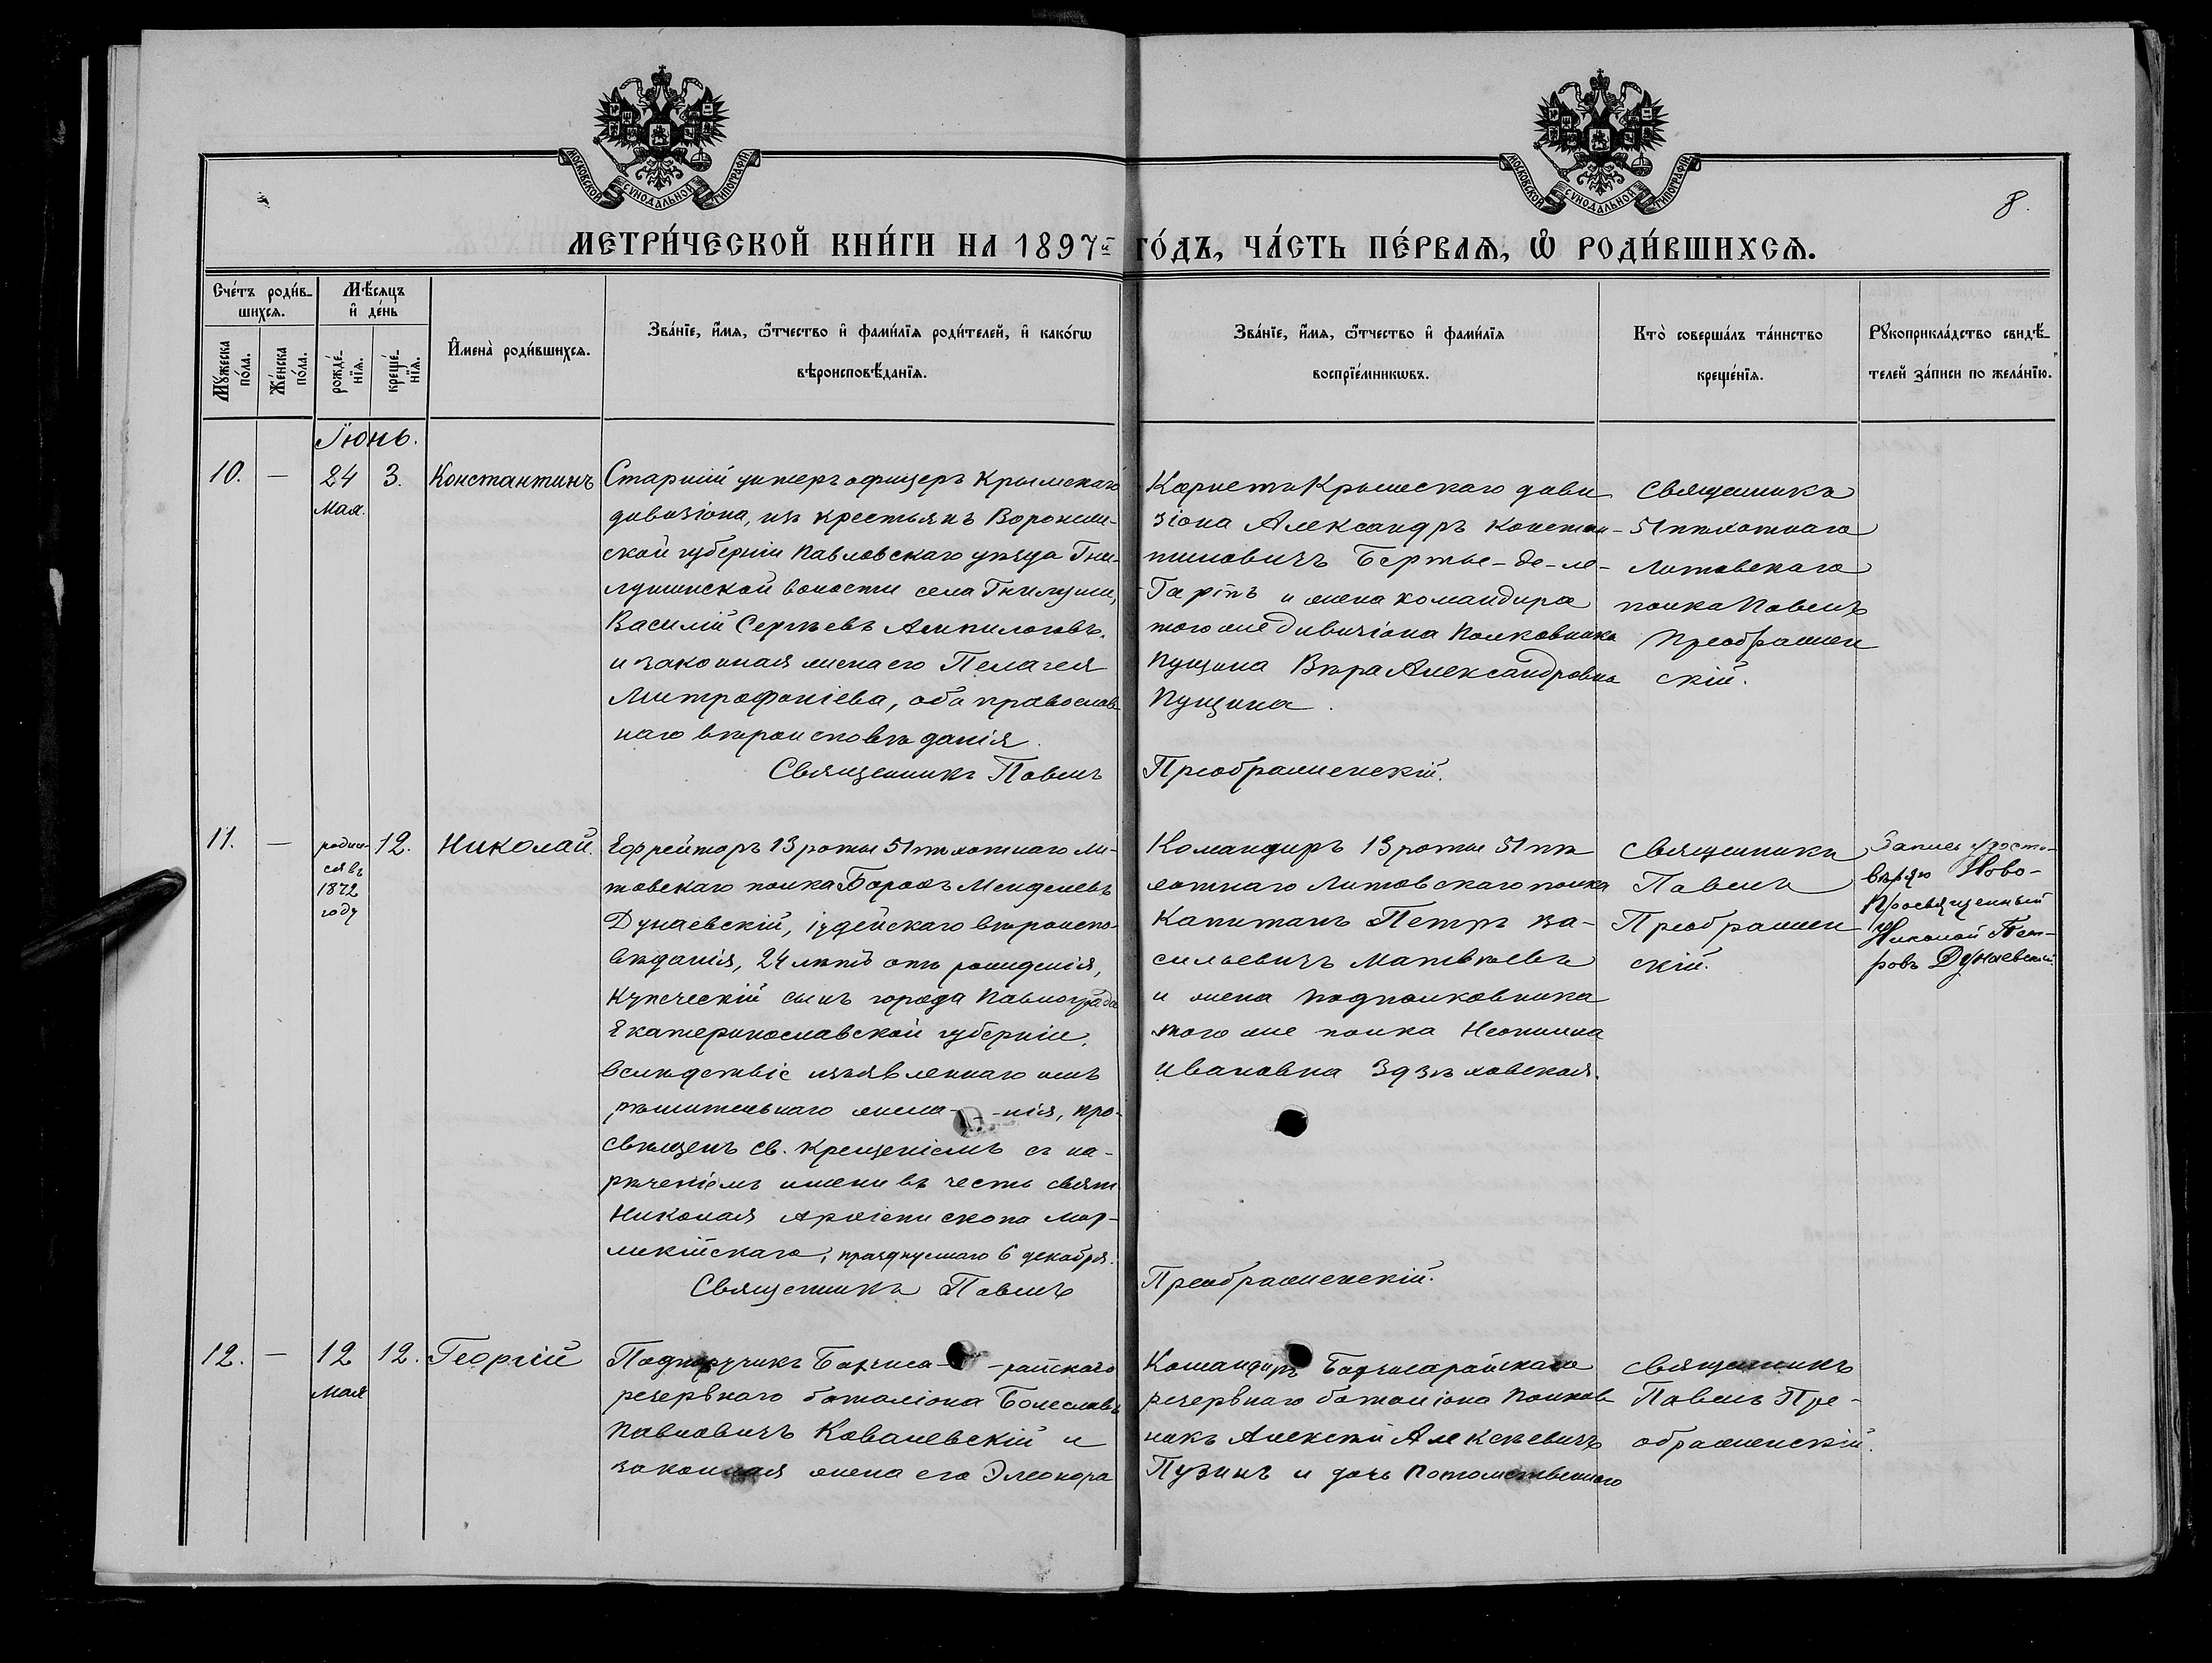 МОСКОВСКОЙ СѴНОДАЛЬНОЙ ТИПОГРАФІИ
МОСКОВСКОЙ СѴНОДАЛЬНОЙ ТИПОГРАФІИ
8.
МЕТРИ́ЧЕСКОЙ КНИ́ГИ НА 1897й ГО́ДЪ, ЧА́СТЬ ПЕ́РВАѦ, Ѡ҆ РОДИ́ВШИХСѦ.
Сче́тъ роди́в-
шихсѧ.
Мꙋ́жеска
по́ла.
Же́нска
по́ла.
Мѣ́сѧцъ
и҆ де́нь
рожде́-
нїѧ.
креще́-
нїѧ.
И҆мена̀ роди́вшихсѧ.
Зва́нїе, и҆́мѧ, ѻ҆́тчество и҆ фами́лїѧ роди́телей, и҆ како́гѡ
вѣроисповѣ́данїѧ.
Зва́нїе, и҆́мѧ, ѻ҆́тчество и҆ фами́лїѧ
воспрїе́мникѡвъ.
Кто̀ соверша́лъ та́инство
креще́нїѧ.
Рꙋкоприкла́дство свидѣ́-
телей за́писи по жела́нїю.
Іюнь.
10. — 24 3. Константинъ
Мая.
Старшій унтеръ офицеръ Крымскаго
дивизіона, изъ крестьянъ Воронеж-
ской губерніи Павловскаго уѣзда Гни-
лушинской волости села Гнилуши,
Василій Сергѣевъ Ампилоговъ.
и законная жена его Пелагея
Митрофаніева, оба православ
наго вѣроисповѣданія.
Священникъ Павелъ
Корнетъ Крымскаго диви
зіона Александръ Констан-
тиновичъ Бертье-де-ла-
Гардъ и жена командира
того же дивизіона Полковника
Пущина Вѣра Александровна
Пущина.
Преображенскій.
Священникъ
51 пѣхотнаго
Литовскаго
полка Павелъ
Преображен
скій.
11. — родил- 12. Николай.
ся въ
1872
году
Ефрейторъ 13 роты 51 пѣхотнаго Ли-
товскаго полка Борохъ Менделевъ
Дунаевскій, іудейскаго вѣроиспо-
вѣданія, 24 лѣтъ отъ рожденія,
Купеческій сынъ города Павлограда
Екатеринославской губерніи,
вслѣдствіе изъявленнаго имъ
рѣшительнаго жела- -нія, про-
свѣщенъ св. крещеніемъ съ на-
реченіемъ имени въ честь святи
Николая Архіепископа Мир-
ликійскаго, празднуемаго 6 декабря.
Священникъ Павелъ
Командиръ 13 роты 51 пѣ
хотнаго Литовскаго полка
Капитанъ Петръ Ва-
сильевичъ Матвѣевъ
и жена подполковника
того же полка Неонилла
Ивановна Здзѣховская.
Преображенскій.
Священникъ
Павелъ
Преображен
скій.
Запись удосто-
вѣряю Ново-
Просвѣщенный
Николай Пет-
ровъ Дунаевскій
12. — 12 12. Георгій
Мая
Подпоручикъ Бахчиса- -райскаго
резервнаго баталіона Болеславъ
Павловичъ Ковалевскій и
законная жена его Элеонора
Командиръ Бахчисарайскаго
резервнаго баталіона Полков
никъ Алексѣй Алексѣевичъ
Пузинъ и дочь Потомственнаго
Священникъ
Павелъ Пре-
ображенскій.